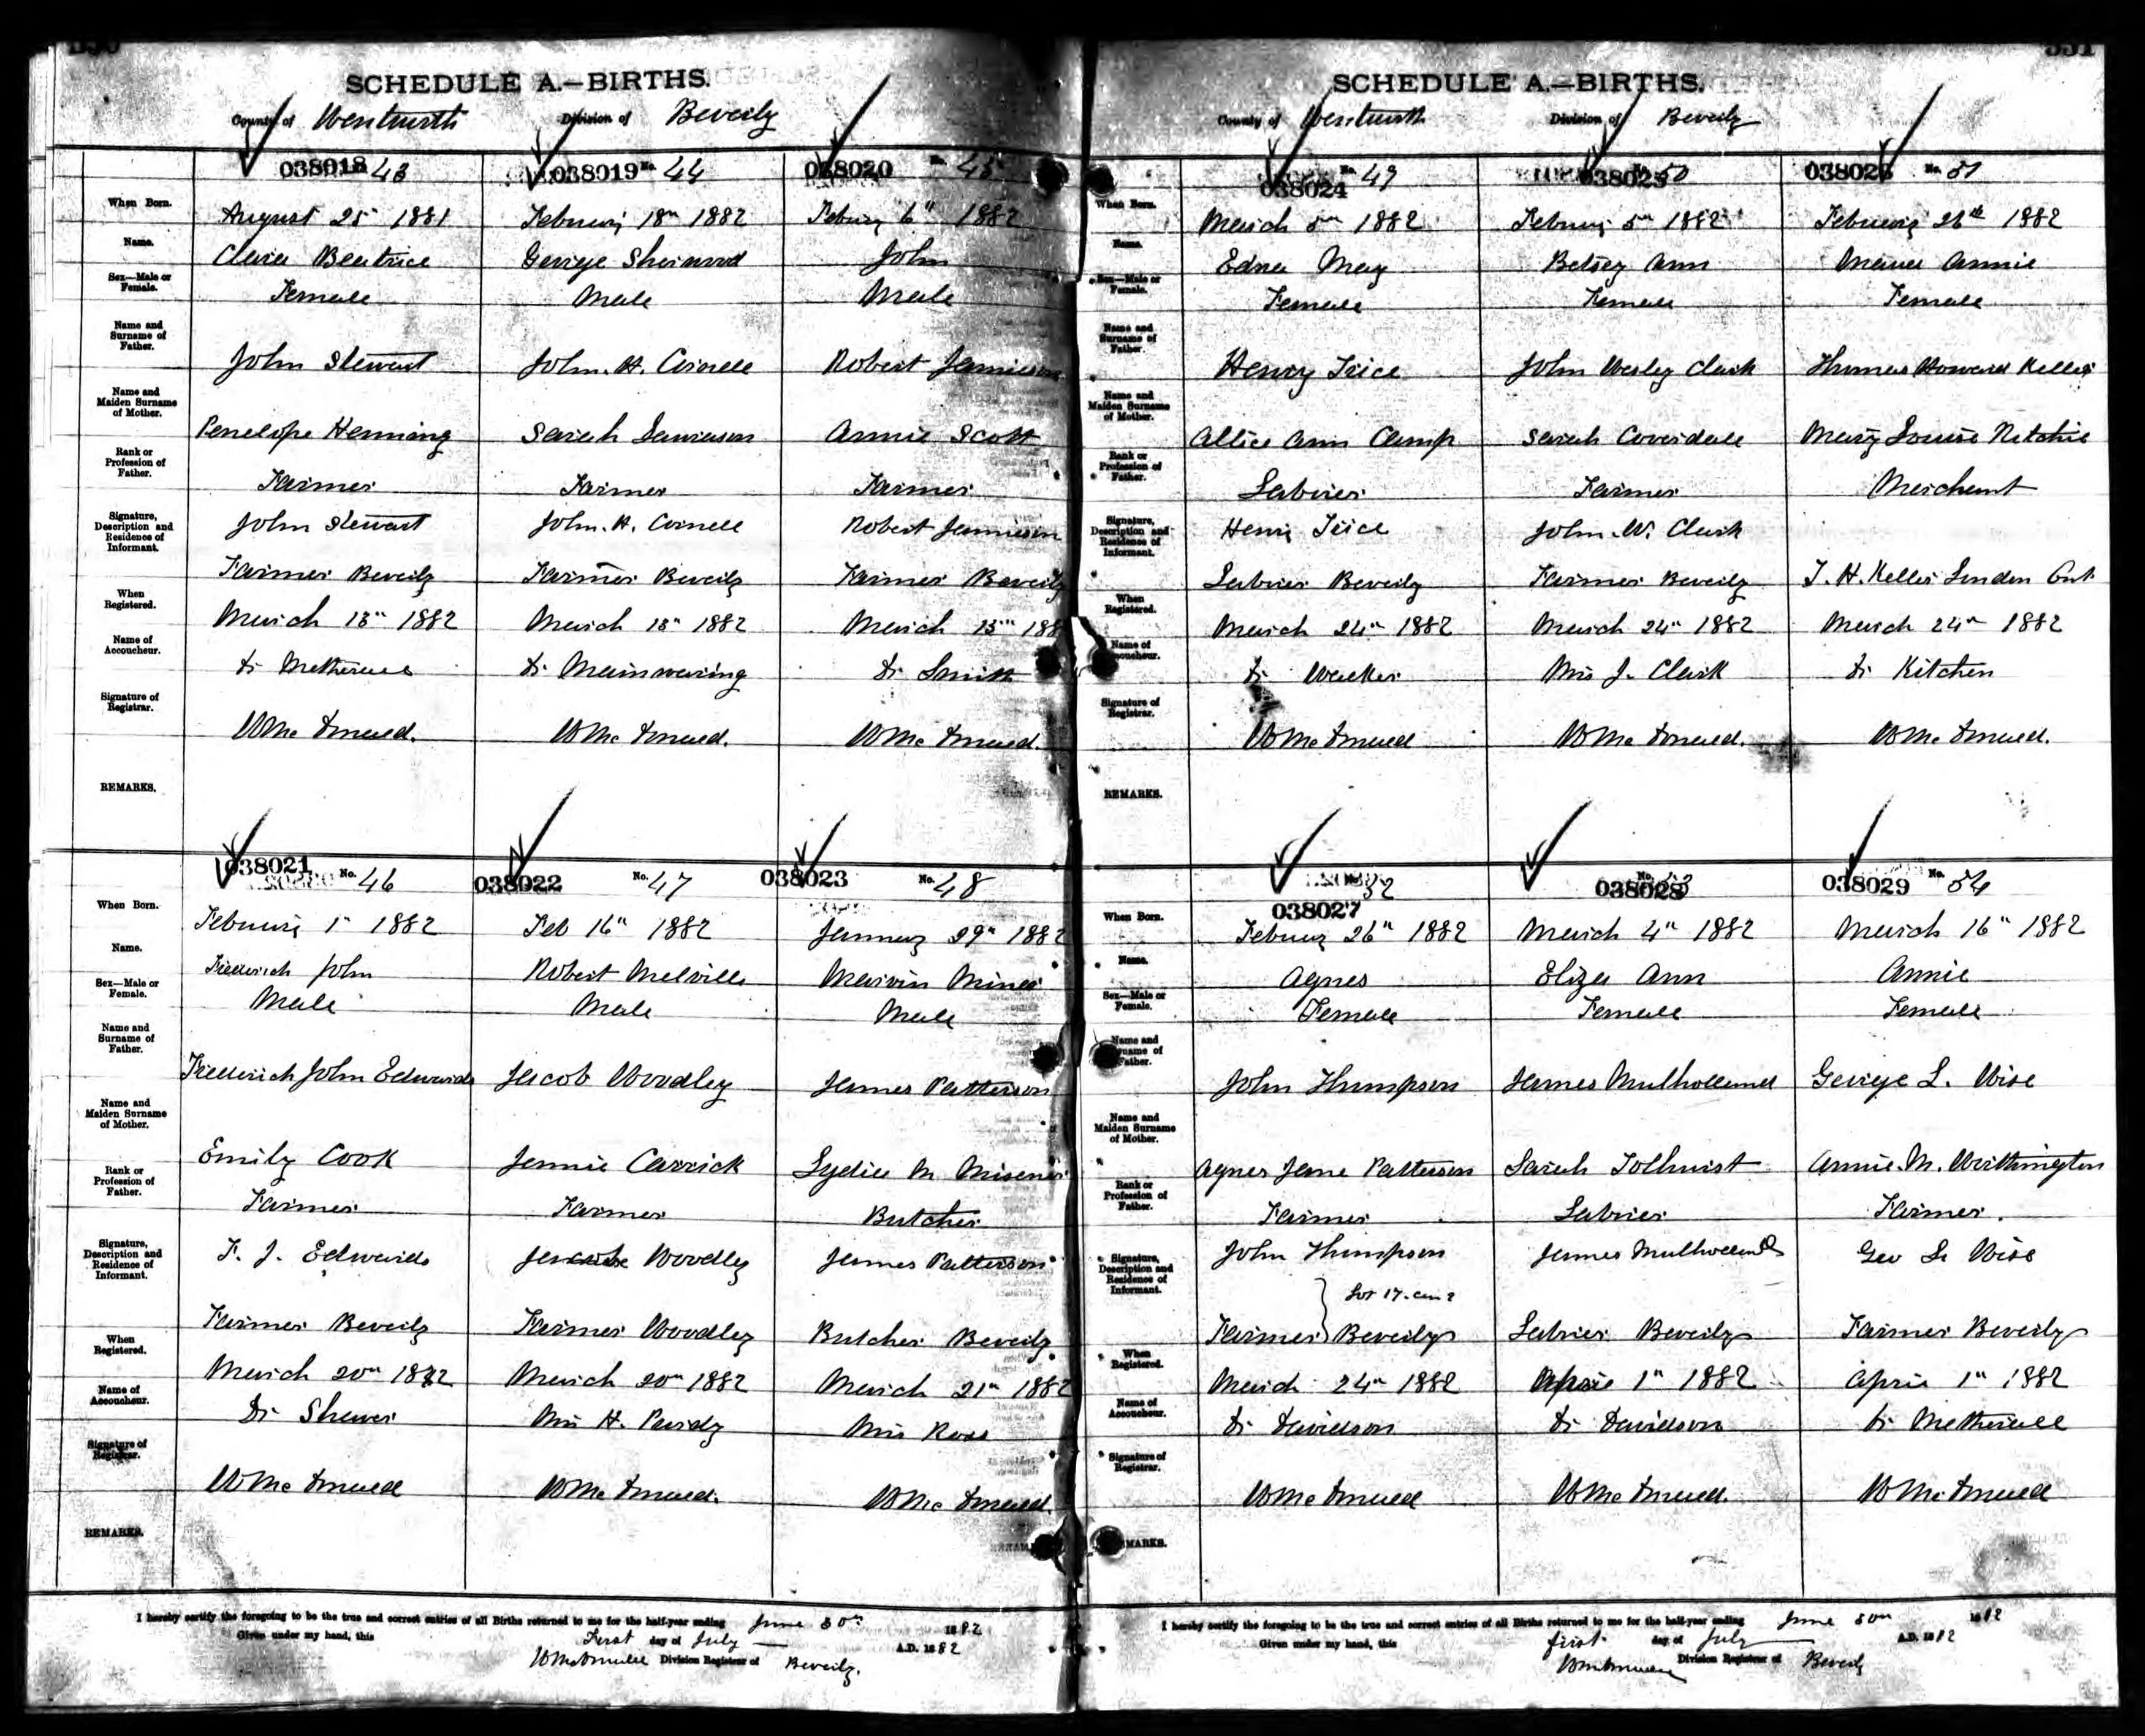 SCHEDULE A.—BIRTHS.
County of Wentworth Division of Beverly
038018 43 038019 No. 44 038020 No. 45
When Born. August 25" 1881 February 18th 1882 February 6" 1882
Name. Clara Beatrice George Sherwood John
Sex—Male or Female. Female Male Male
Name and Surname of Father. John Stewart John. H. Cornell Robert Jamieson
Name and Maiden Surname of Mother. Penelope Henning Sarah Annie Scott
Rank or Profession of Father. Farmer Farmer Farmer
Signature, Description and Residence of Informant. John Stewart John. H. Cornell Robert Jamieson
Farmer Beverly Farmer Beverly Farmer Beverly
When Registered. March 13th 1882 March 13th 1882 March 13th 188
Name of Accoucheur. Dr Metherall Dr Mainwaring Dr Smith
Signature of Registrar. Wm Mc Donald. Wm Mc Donald. Wm Mc Donald.
REMARKS.
038021 No. 46 038022 No. 47 038023 No. 48
When Born. February 1st 1882 Feb 16th 1882 January 29th 1882
Name. Frederich John Robert Melville Marvin Miner
Sex—Male or Female. Male Male Male
Name and Surname of Father. Frederich John Edwards Jacob Woodley James Patterson
Name and Maiden Surname of Mother. Emily Cook Jennie Carrick Lydia M Misener
Rank or Profession of Father. Farmer Farmer Butcher
Signature, Description and Residence of Informant. F. J. Edwards Woodley James Patterson
Farmer Beverly Farmer Woodley Butcher Beverly
When Registered. March 20th 1882 March 20th 1882 March 21st 1882
Name of Accoucheur. Dr Shaver Mrs H. Purdy Mrs Ross
Signature of Registrar. Wm Mc Donald Wm Mc Donald. Wm Mc Donald.
REMARKS.
I hereby certify the foregoing to be the true and correct entries of all Births returned to me for the half-year ending June 30th 1882
Given under my hand, this First day of July A.D. 1882
Division Registrar of Beverly.
331
SCHEDULE A.—BIRTHS.
County of Wentworth Division of Beverly
038024 No. 49 038025 50 038026 No. 51
When Born. March 5th 1882 February 5th 1882 February 26th 1882
Name. Edna May Betsey Ann Annie
Sex—Male or Female. Female Female Female
Name and Surname of Father. Henry Trice John Wesley Clark Thomas Howard Keller
Name and Maiden Surname of Mother. Allice Ann Camp Sarah Coverdale Mary Louise Ritchie
Rank or Profession of Father. Laborer Farmer Merchant
Signature, Description and Residence of Informant. Henry Trice John. W. Clark
Laborer Beverly Farmer Beverly T. H. Keller Lynden Ont.
When Registered. March 24th 1882 March 24th 1882 March 24th 1882
Name of Accoucheur. Dr Walker Mrs J. Clark Dr Kitchen
Signature of Registrar. Wm Mc Donald Wm Mc Donald. Wm Mc Donald.
REMARKS.
038027 52 038028 53 038029 No. 54
When Born. February 26th 1882 March 4th 1882 March 16th 1882
Name. Agnes Eliza Ann Annie
Sex—Male or Female. Female Female Female
Name and Surname of Father. John Thompson James Mulholland George L. Wise
Name and Maiden Surname of Mother. Agnes Jane Patterson Sarah Tolhurst Annie. M. Worthington
Rank or Profession of Father. Farmer Laborer Farmer.
Signature, Description and Residence of Informant. John Thompson James Mulholland Geo L. Wise
Lot 17. con 2
Farmer Beverly Laborer Beverly Farmer Beverly
When Registered. March 24th 1882 April 1st 1882 April 1st 1882
Name of Accoucheur. Dr Davidson Dr Davidson Dr Metherall
Signature of Registrar. Wm Mc Donald Wm Mc Donald. Wm Mc Donald
MARKS.
I hereby certify the foregoing to be the true and correct entries of all Births returned to me for the half-year ending June 30th 1882
Given under my hand, this first day of July A.D. 1882
Division Registrar of Beverly